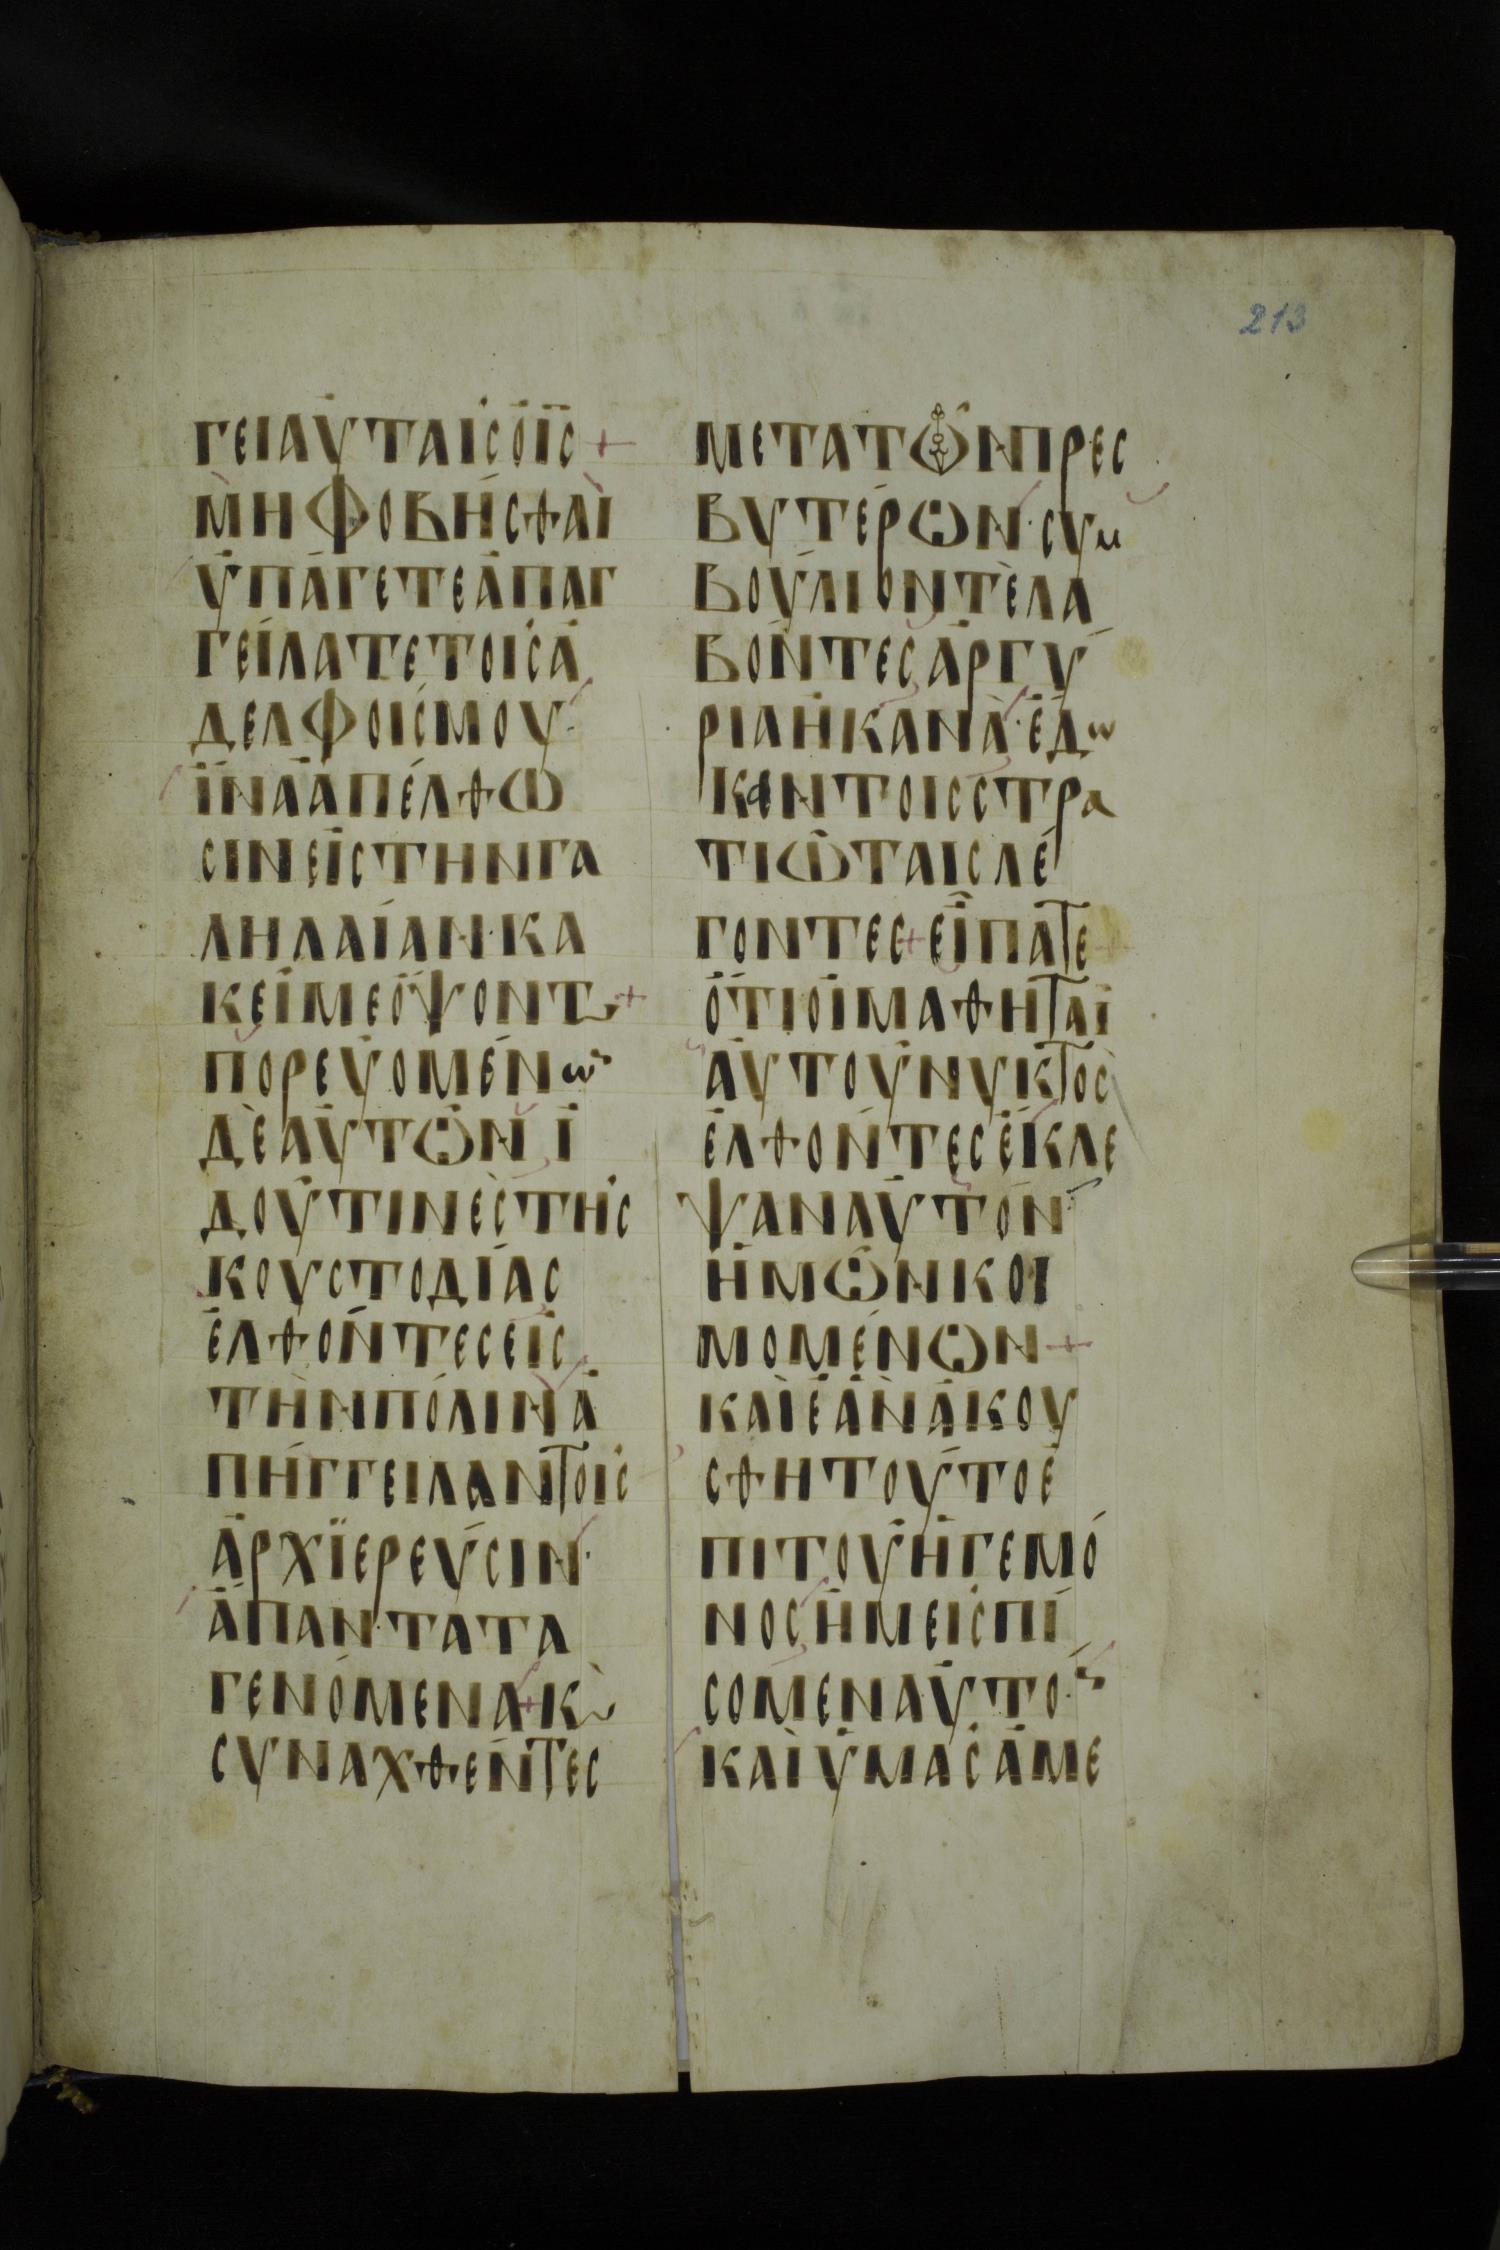 213
ΓΕΙΑΥΤΑΙϹΟΙ̅Ϲ̅ +
ΜΗΦΟΒΗϹΘΑΙ
ΥΠΑΓΕΤΕΑΠΑΓ
ΓΕΙΛΑΤΕΤΟΙϹΑ
ΔΕΛΦΟΙϹΜΟΥ·
ΙΝΑΑΠΕΛΘΩ
ϹΙΝΕΙϹΤΗΝΓΑ
ΛΗΛΑΙΑΝ·ΚΑ
ΚΕΙΜΕΟΨΟΝΤ +
ΠΟΡΕΥΟΜΕΝΩ
ΔΕΑΥΤΩΝΙ
ΔΟΥΤΙΝΕϹΤΗϹ
ΚΟΥϹΤΟΔΙΑϹ
ΕΛΘΟΝΤΕϹΕΙϹ
ΤΗΝΠΟΛΙΝΑ
ΠΗΓΓΕΙΛΑΝΤΟΙϹ
ΑΡΧΙΕΡΕΥϹΙΝ·
ΑΠΑΝΤΑΤΑ
ΓΕΝΟΜΕΝΑ+Κ
ϹΥΝΑΧΘΕΝΤΕϹ
ΜΕΤΑΤΩΝΠΡΕϹ
ΒΥΤΕΡΩΝ·ϹΥΜ
ΒΟΥΛΙΟΝΤΕΛΑ
ΒΟΝΤΕϹΑΡΓΥ
ΡΙΑΗΚΑΝΑ·ΕΔΩ
ΚΑΝΤΟΙϹϹΤΡΑ
ΤΙΩΤΑΙϹΛΕ
ΓΟΝΤΕϹ+ΕΙΠΑΤΕ
ΟΤΙΟΙΜΑΘΗΤΑΙ
ΑΥΤΟΥΝΥΚΤΟϹ
ΕΛΘΟΝΤΕϹΕΚΛΕ
ΨΑΝΑΥΤΟΝ
ΗΜΩΝΚΟΙ
ΜΟΜΕΝΩΝ +
ΚΑΙΕΑΝΑΚΟΥ
ϹΘΗΤΟΥΤΟΕ
ΠΙΤΟΥΗΓΕΜΟ
ΝΟϹΗΜΕΙϹΠΙ
ϹΟΜΕΝΑΥΤΟ·
ΚΑΙΥΜΑϹΑΜΕ